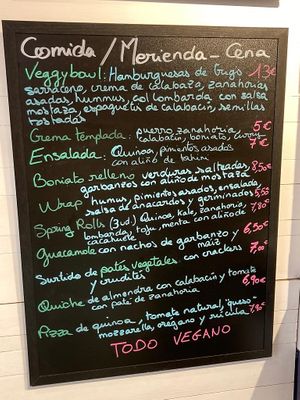 Comida / Merienda - Cena
Veggybowl: Hamburguesas de trigo 13€
sarraceno, crema de calabaza, zanahorias
asadas, hummus, col lombarda con salsa
mostaza, espaguetis de calabacín, semillas
tostadas
Crema templada: puerro, zanahoria, 5€
calabacín, boniato, curry
Ensalada: Quinoa, pimientos asados 7€
con aliño de tahini
Boniato relleno verduras salteadas, 8,50€
garbanzos con aliño de mostaza
Wrap humus, pimientos asados, ensalada,
salsa de anacardos y germinados 5,50
Spring Rolls (3ud.) Quinoa, kale, zanahoria, 7,80€
lombarda, tofu, menta con aliño de
cacahuete
Guacamole con nachos de garbanzo y 6,50€
maíz
Surtido de patés vegetales con crackers 7,00€
y crudités
Quiche de almendra con calabacín y tomate 6,90€
con paté de zanahoria
Pizza de quinoa, tomate natural, queso 7,90€
mozzarella, orégano y rúcula
TODO VEGANO